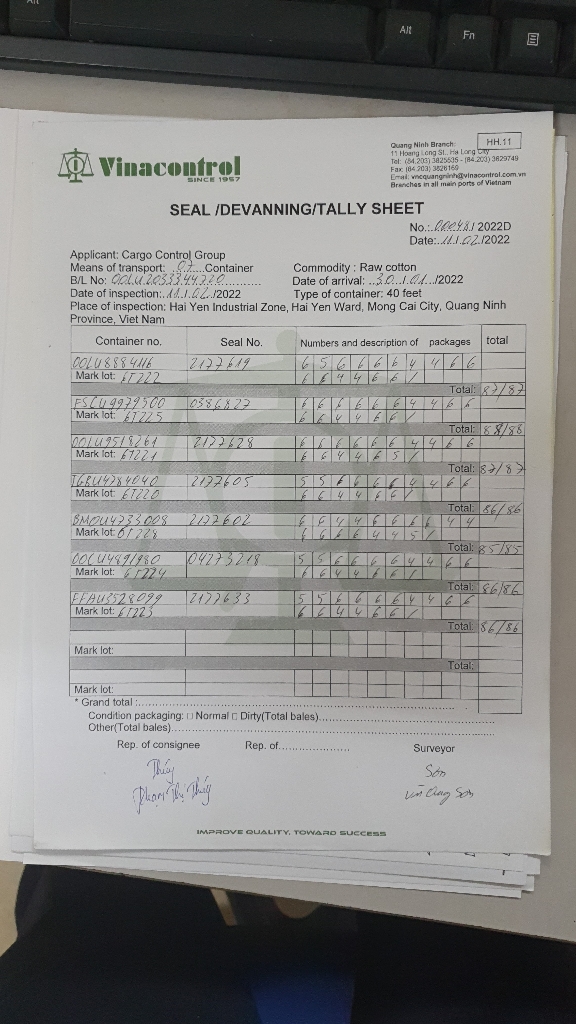 Alt
Alt
Fn
Vinacontrol
SINCE 1957
Quang Ninh Branch:
HH.11
11 Hoang Long St., Ha Long City
Tel: (84.203) 3825535 - (84.203) 3629749
Fax: (84.203) 3826169
Email: vncquangninh@vinacontrol.com.vn
Branches in all main ports of Vietnam
SEAL /DEVANNING/TALLY SHEET
No.: 00048 / 2022D
Date: 11/02/2022
Applicant: Cargo Control Group
Means of transport: 07 Container Commodity : Raw cotton
B/L No: OOLU2033344720 Date of arrival: 30/01/2022
Date of inspection: 11/02/2022 Type of container: 40 feet
Place of inspection: Hai Yen Industrial Zone, Hai Yen Ward, Mong Cai City, Quang Ninh
Province, Viet Nam
Container no. Seal No. Numbers and description of packages total
OOLU8884116 2177619 6 5 6 6 6 6 4 4 6 6
Mark lot: 6T222 6 6 4 4 6 6 /
Total: 87/87
FSCU9979500 0386827 6 6 6 6 6 6 4 4 6 6
Mark lot: 6T225 6 6 4 4 6 6 /
Total: 88/88
OOLU9518261 2177628 6 6 6 6 6 6 4 4 6 6
Mark lot: 6T221 6 6 4 4 6 5 /
Total: 87/87
TGBU4784040 2177605 5 5 6 6 6 6 4 4 6 6
Mark lot: 6T220 6 6 4 4 6 6 /
Total: 86/86
BMOU4733008 2177602 6 6 4 4 6 6 6 6 4 4
Mark lot: 6T228 6 6 6 6 4 4 5 /
Total: 85/85
OOCU4891980 04273218 5 5 6 6 6 6 4 4 6 6
Mark lot: 6T224 6 6 4 4 6 6 /
Total: 86/86
FFAU3528099 2177633 5 5 6 6 6 6 4 4 6 6
Mark lot: 6T223 6 6 4 4 6 6 /
Total: 86/86
Mark lot:
Total:
Mark lot:
* Grand total :
Condition packaging: □ Normal □ Dirty(Total bales)
Other(Total bales)
Rep. of consignee Rep. of Surveyor
Thúy Sơn
Phạm Thị Thúy Sơn
IMPROVE QUALITY, TOWARD SUCCESS